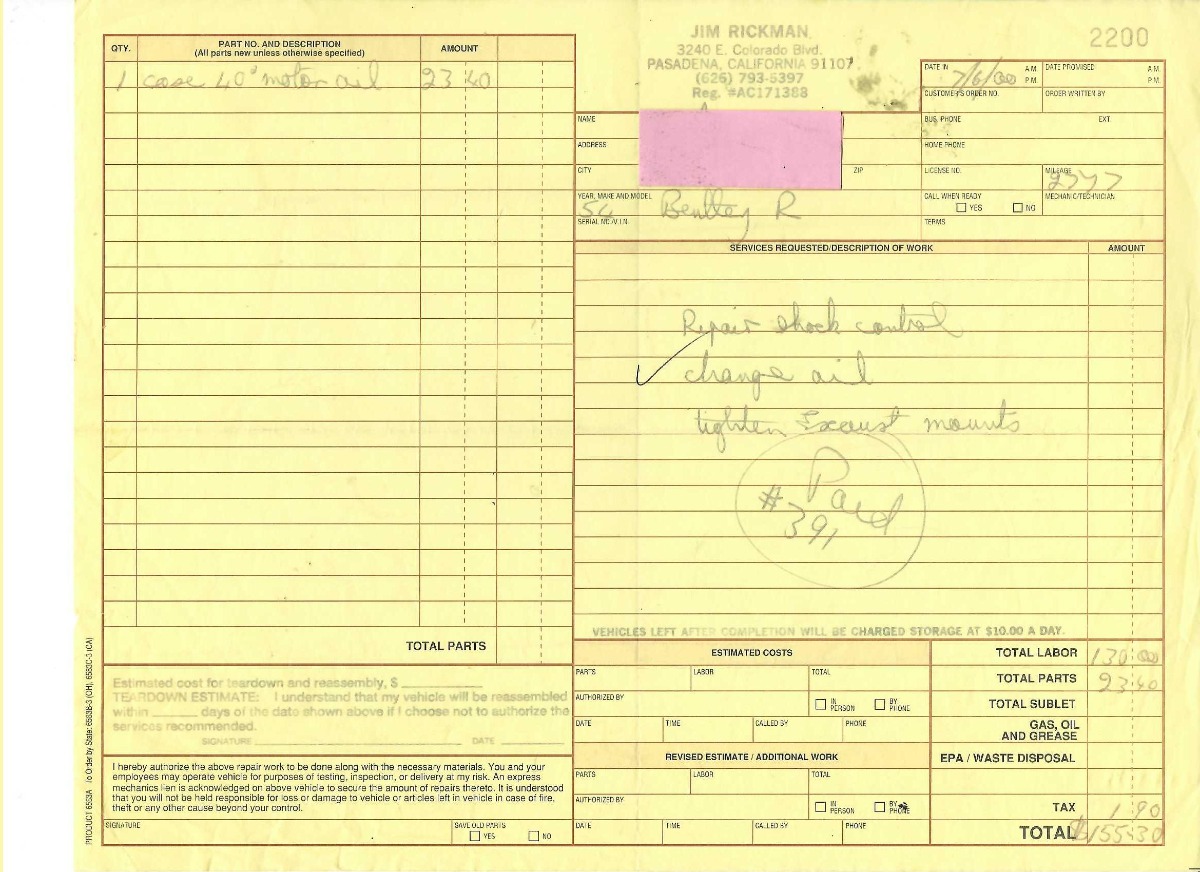 JIM RICKMAN
3240 E. Colorado Blvd.
PASADENA, CALIFORNIA 91107
(626) 793-5397
Reg. #AC171388
2200
QTY.
PART NO. AND DESCRIPTION
(All parts new unless otherwise specified)
AMOUNT
1 case 40° motor oil 23 40
DATE IN 7/6/00 A.M. P.M.
DATE PROMISED A.M. P.M.
CUSTOMER'S ORDER NO.
ORDER WRITTEN BY
NAME
BUS. PHONE EXT.
ADDRESS
HOME PHONE
CITY ZIP
LICENSE NO.
MILEAGE
YEAR, MAKE AND MODEL
54 Bentley R
CALL WHEN READY
YES NO
MECHANIC/TECHNICIAN
SERIAL NO./V.I.N.
TERMS
SERVICES REQUESTED/DESCRIPTION OF WORK AMOUNT
Repair shock control
change oil
tighten Exaust mounts
Paid
#391
VEHICLES LEFT AFTER COMPLETION WILL BE CHARGED STORAGE AT $10.00 A DAY.
TOTAL PARTS
Estimated cost for teardown and reassembly, $
TEARDOWN ESTIMATE: I understand that my vehicle will be reassembled
within days of the date shown above if I choose not to authorize the
services recommended.
SIGNATURE DATE
I hereby authorize the above repair work to be done along with the necessary materials. You and your
employees may operate vehicle for purposes of testing, inspection, or delivery at my risk. An express
mechanics lien is acknowledged on above vehicle to secure the amount of repairs thereto. It is understood
that you will not be held responsible for loss or damage to vehicle or articles left in vehicle in case of fire,
theft or any other cause beyond your control.
SIGNATURE
SAVE OLD PARTS
YES NO
ESTIMATED COSTS
PARTS LABOR TOTAL
AUTHORIZED BY
IN PERSON
BY PHONE
DATE TIME CALLED BY PHONE
REVISED ESTIMATE / ADDITIONAL WORK
PARTS LABOR TOTAL
AUTHORIZED BY
IN PERSON
BY PHONE
DATE TIME CALLED BY PHONE
TOTAL LABOR 130 00
TOTAL PARTS 23 40
TOTAL SUBLET
GAS, OIL
AND GREASE
EPA / WASTE DISPOSAL
TAX 1 90
TOTAL $155.30
PRODUCT 6553A